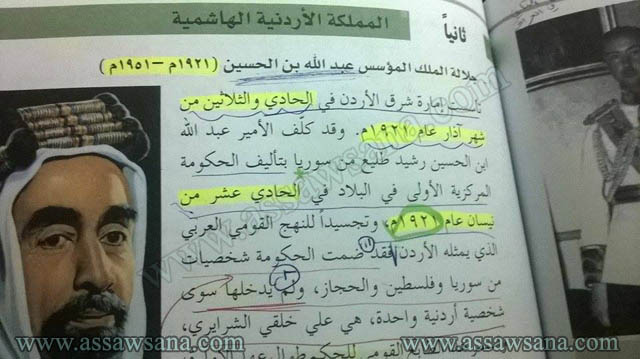 ثانياً
المملكة الأردنية الهاشمية
جلالة الملك المؤسس عبد الله بن الحسين (١٩٢١م – ١٩٥١م)
تأسست إمارة شرق الأردن في الحادي والثلاثين من
شهر آذار عام ١٩٢١م. وقد كلّف الأمير عبد الله
ابن الحسين رشيد طليع من سوريا بتأليف الحكومة
المركزية الأولى في البلاد في الحادي عشر من
نيسان عام ١٩٢١م، وتجسيداً للنهج القومي العربي
الذي يمثله الأردن فقد ضمت الحكومة شخصيات
من سوريا وفلسطين والحجاز، ولم يدخلها سوى
شخصية أردنية واحدة، هي علي خلقي الشرايري،
القومي للحكم طوال
www.assawsana.com
www.assawsana.com
www.assawsana.com